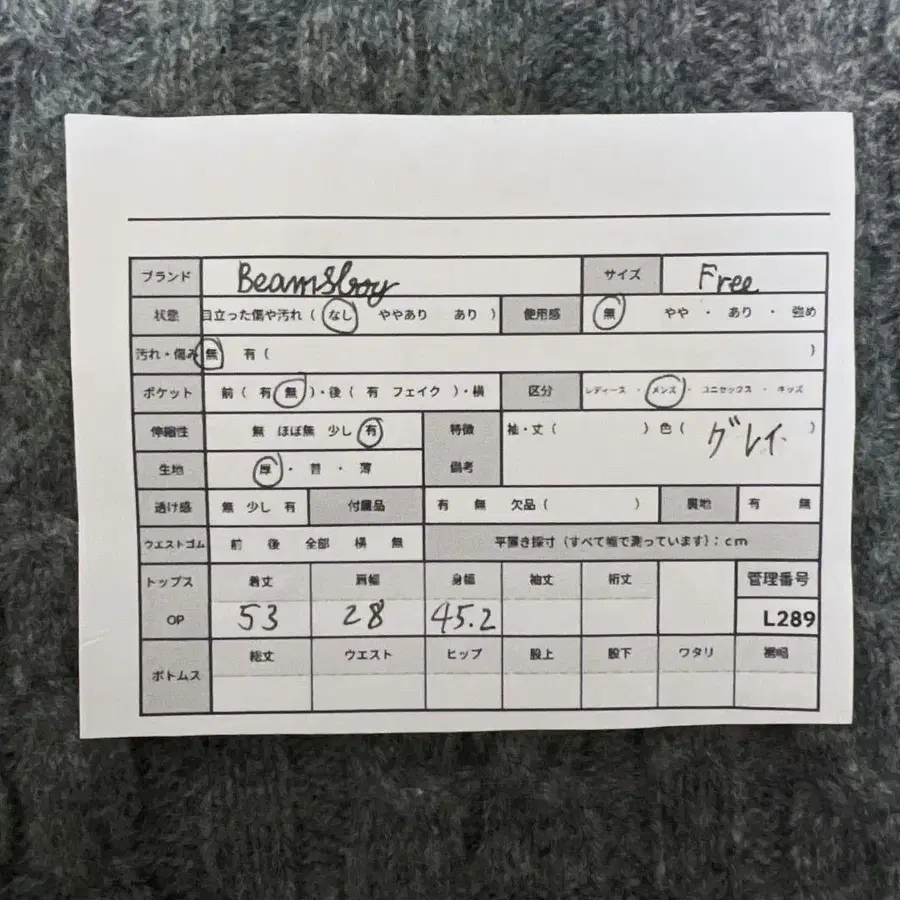 ブランド Beams8boy サイズ Free
状態 目立った傷や汚れ ( なし ややあり あり ) 使用感 無 やや ・ あり ・ 強め
汚れ・傷み 無 有 ( )
ポケット 前 ( 有 無 )・後 ( 有 フェイク )・横 区分 レディース ・ メンズ ・ ユニセックス ・ キッズ
伸縮性 無 ほぼ無 少し 有 特徴 袖・丈 ( ) 色 ( グレイ )
生地 厚 ・ 普 ・ 薄 備考
透け感 無 少し 有 付属品 有 無 欠品 ( ) 裏地 有 無
ウエストゴム 前 後 全部 横 無 平置き採寸 (すべて幅で測っています) : cm
トップス 着丈 肩幅 身幅 袖丈 裄丈 管理番号
OP 53 28 45.2 L289
ボトムス 総丈 ウエスト ヒップ 股上 股下 ワタリ 裾幅